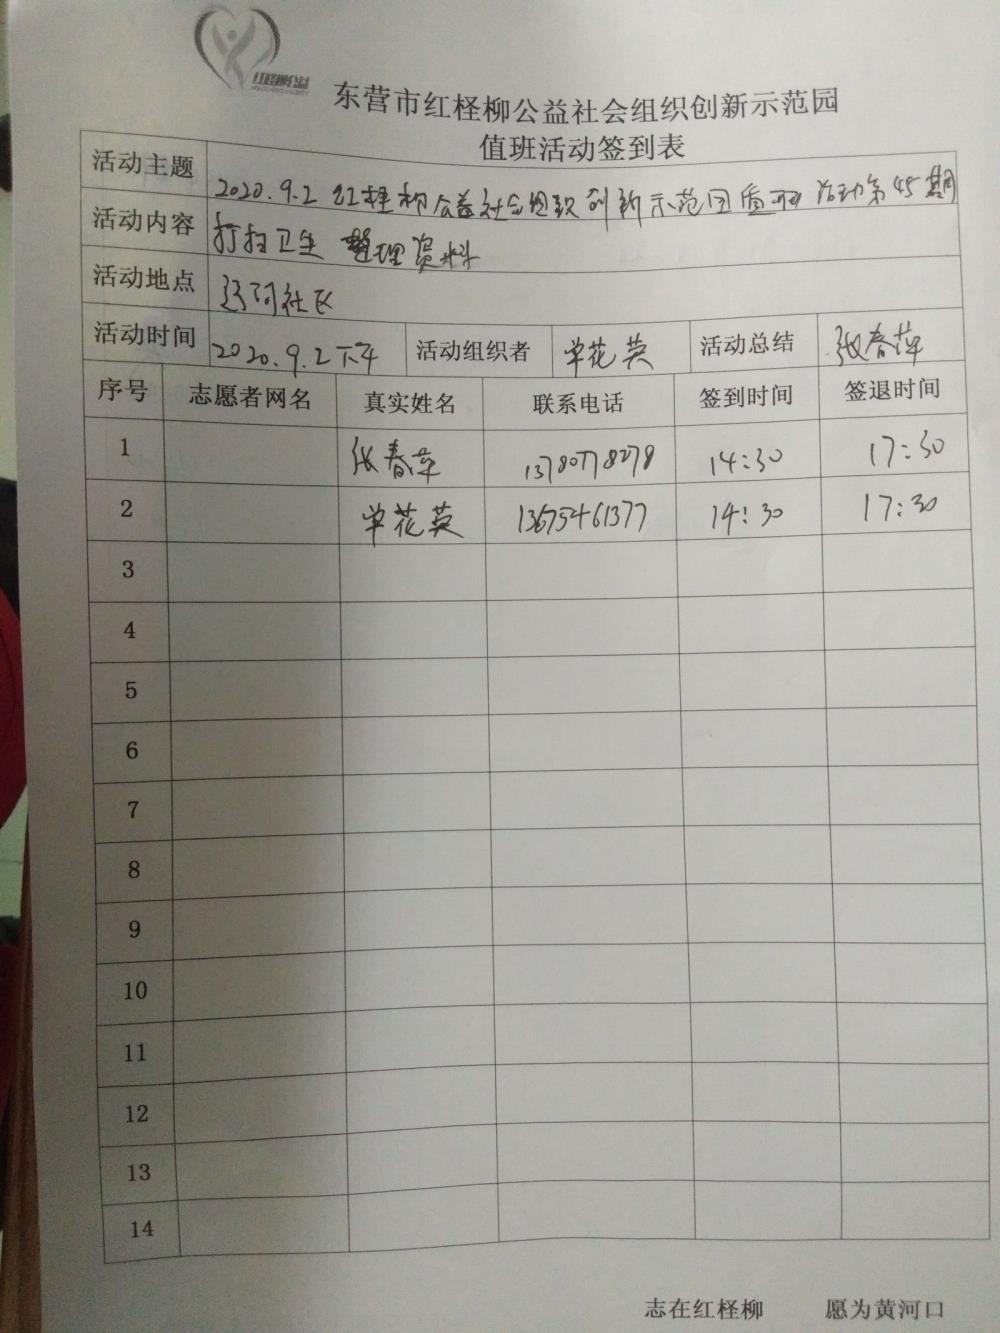 红柽柳公益
东营市红柽柳公益社会组织创新示范园
值班活动签到表
活动主题 2020.9.2 红柽柳公益社会组织创新示范园值班活动第45期
活动内容 打扫卫生 整理资料
活动地点 辽河社区
活动时间 2020.9.2下午 活动组织者 单花英 活动总结 张春萍
序号 志愿者网名 真实姓名 联系电话 签到时间 签退时间
1 张春萍 13780778278 14:30 17:30
2 单花英 13675461377 14:30 17:30
3
4
5
6
7
8
9
10
11
12
13
14
志在红柽柳 愿为黄河口